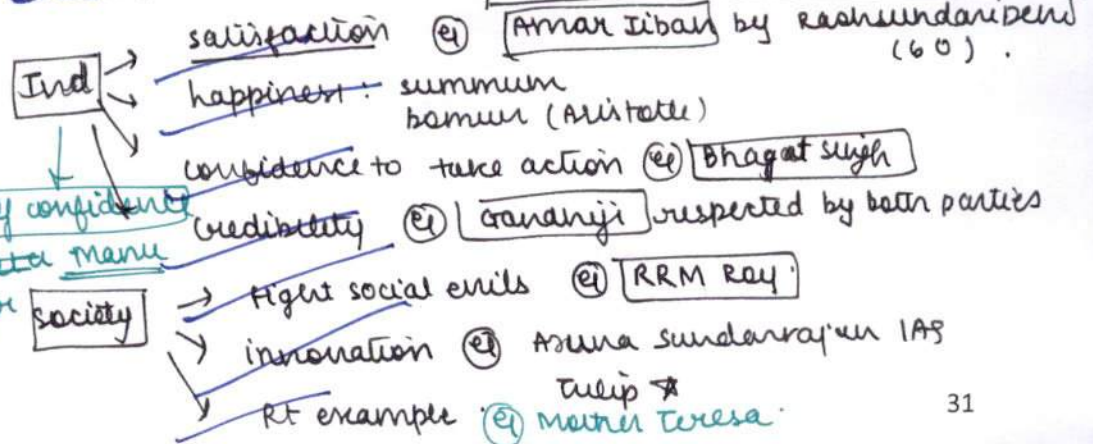 satisfaction eg Amar Jiban by Rashsundari Devi
(60).
Ind
happiness: summum
bomum (Aristotle)
confidence to take action eg Bhagat singh
y confidence
credibility eg Gandhiji respected by both parties
Manu
society
fight social evils eg RRM Roy.
innovation eg Aruna Sundarrajan IAS
Tulip
Rt example. eg Mother Teresa.
31